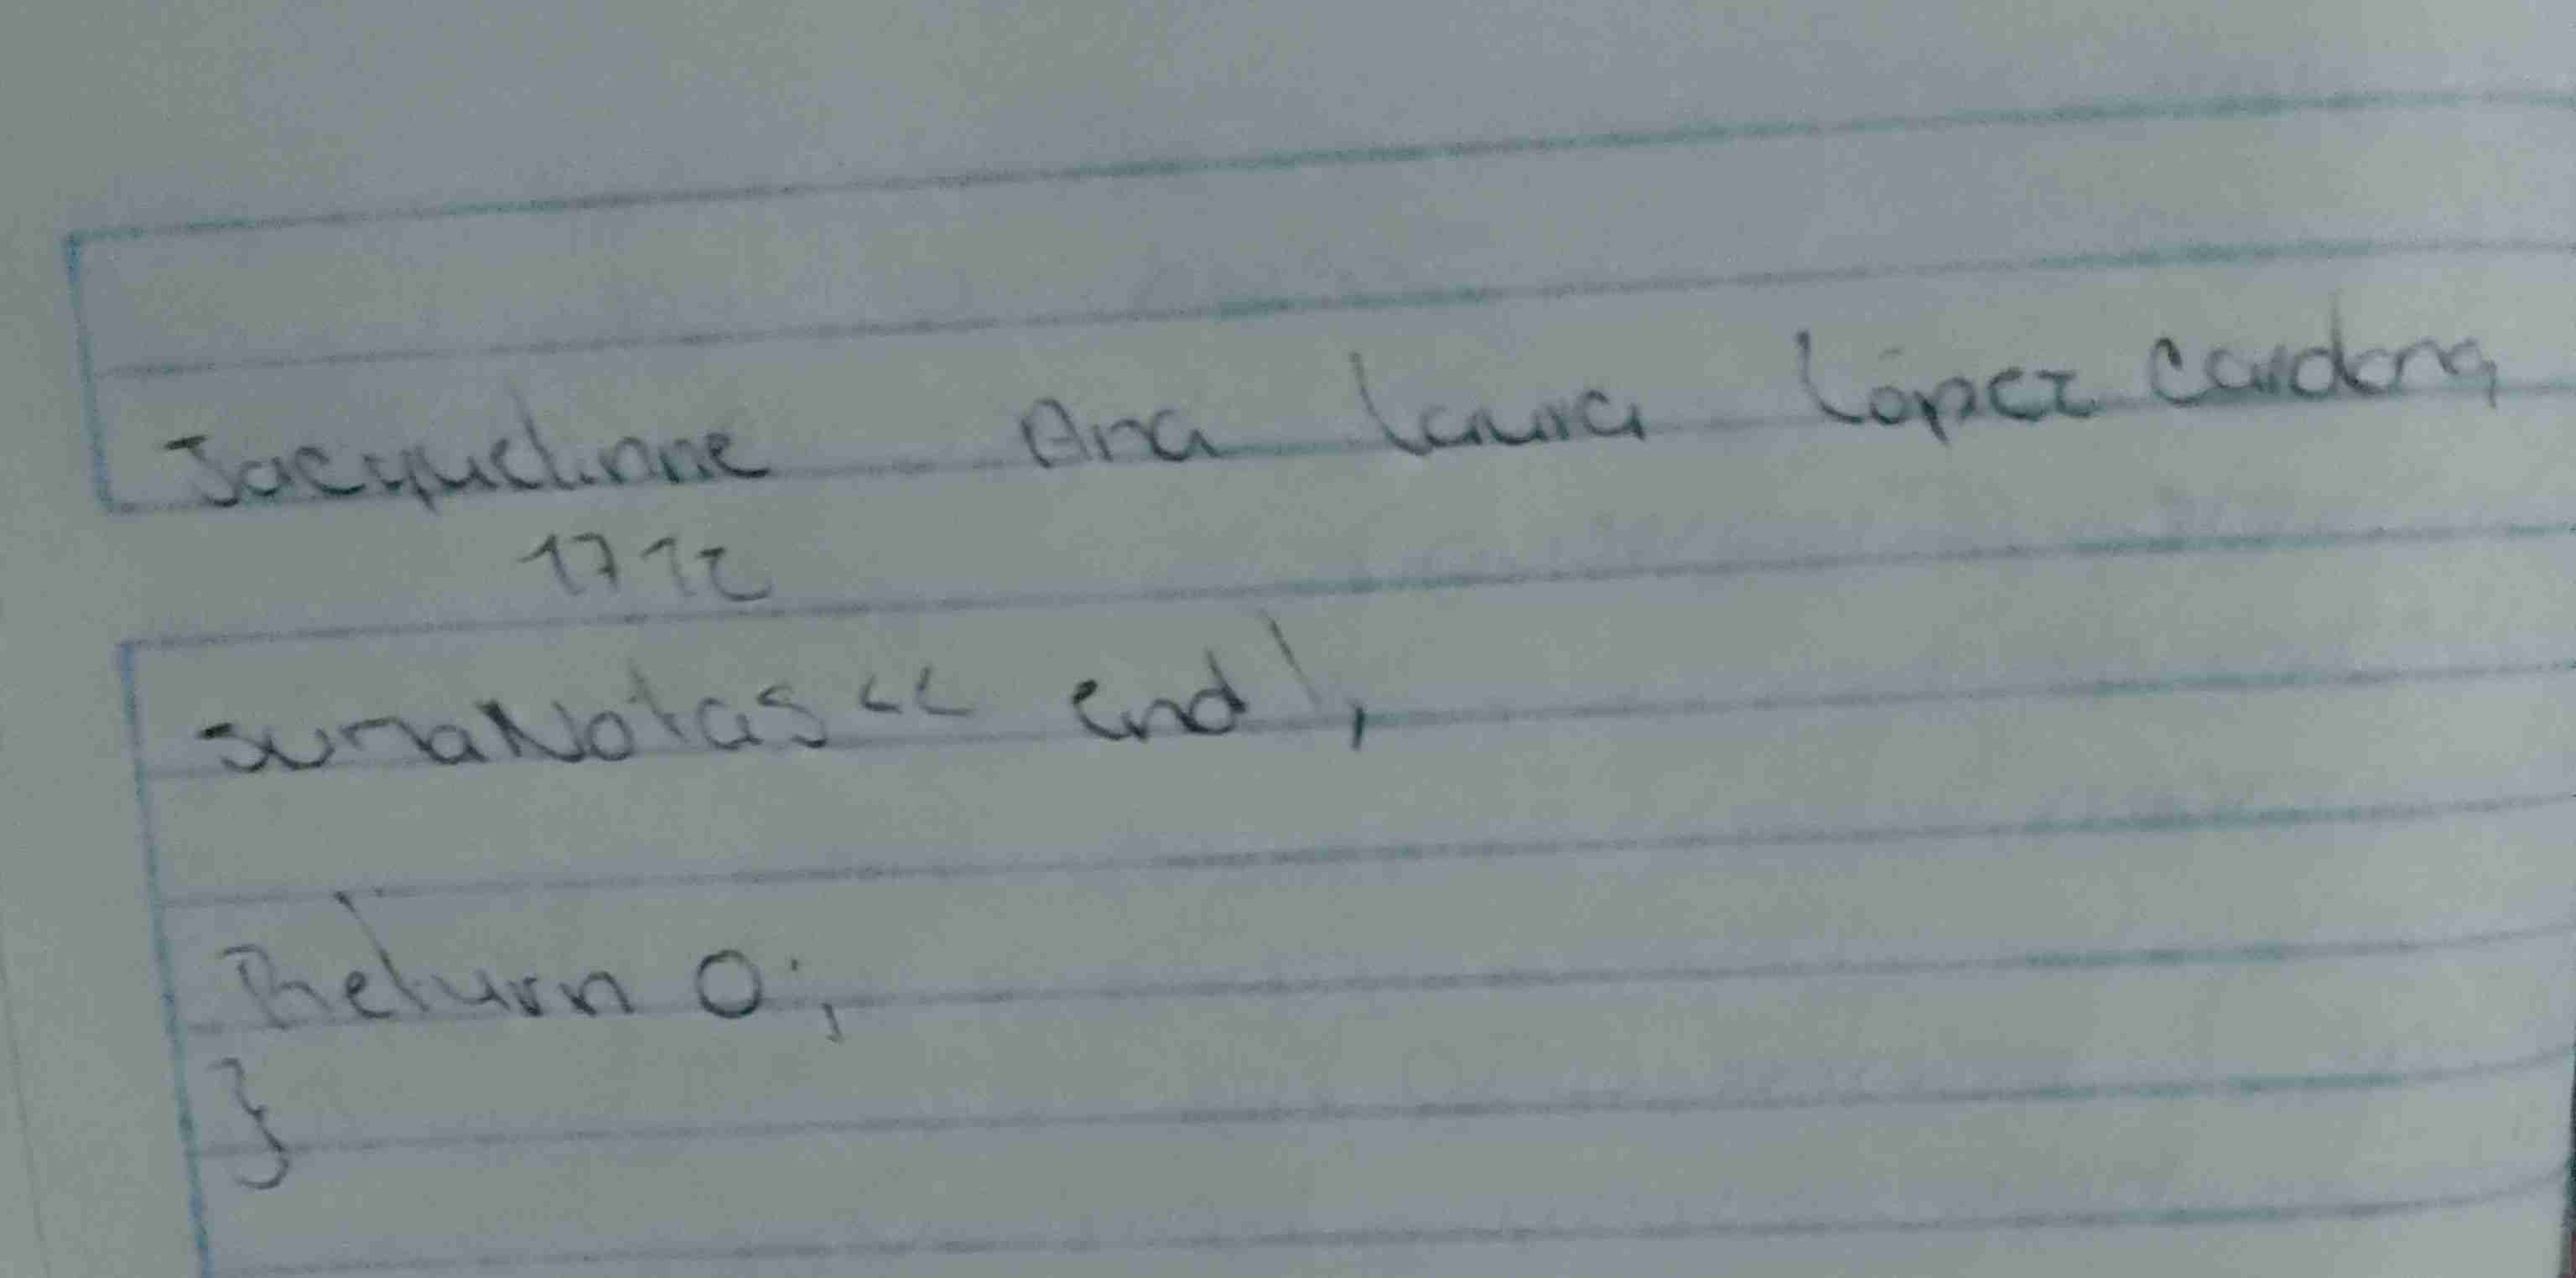 Jacquelinne Ana laura López Cardona
1712
sumaNotas << endl,
Return 0;
}